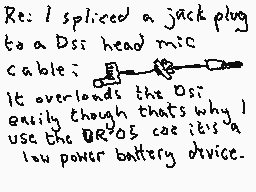 Re: I spliced a jack plug
to a Dsi head mic
cable:
It overloads the Dsi
easily though thats why I
use the DR-05 coz it's a
low power battery device.